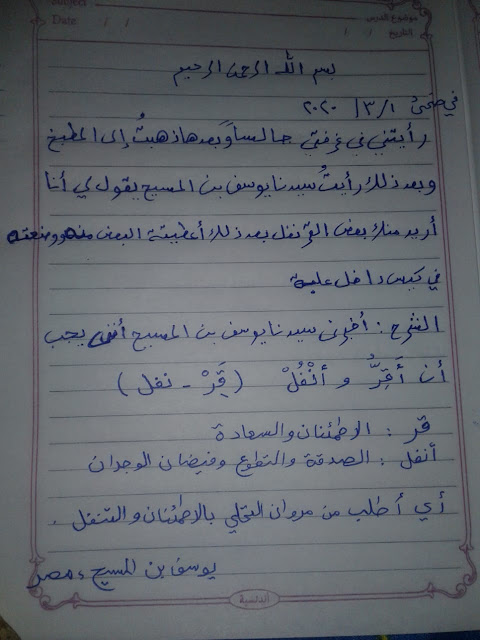 Subject
Date / /
موضوع الدرس
التاريخ / /
بسم الله الرحمن الرحيم
في ضحى ١ / ٣ / ٢٠٢٠
رأيتني في غرفتي جالساً وَبعدها ذهبتُ إلى المطبخ
وبعد ذلك رأيتُ سيدنا يوسف بن المسيح يقول لي أنا
أريد منك بعض القرنفل بعد ذلك أعطيتة البعض منه ووضعته
في كيس داخل علبة
الشرح : أخبرني سيدنا يوسف بن المسيح أنه يجب
أن أَقِرُّ و أنْفُلْ ( قِرْ - نفل )
قر : الاطمئنان والسعادة
أنفل : الصدقة والتطوع وفيضان الوجدان
أي أطلب من مروان التحلي بالاطمئنان والتنفل .
يوسف بن المسيح ، مصر